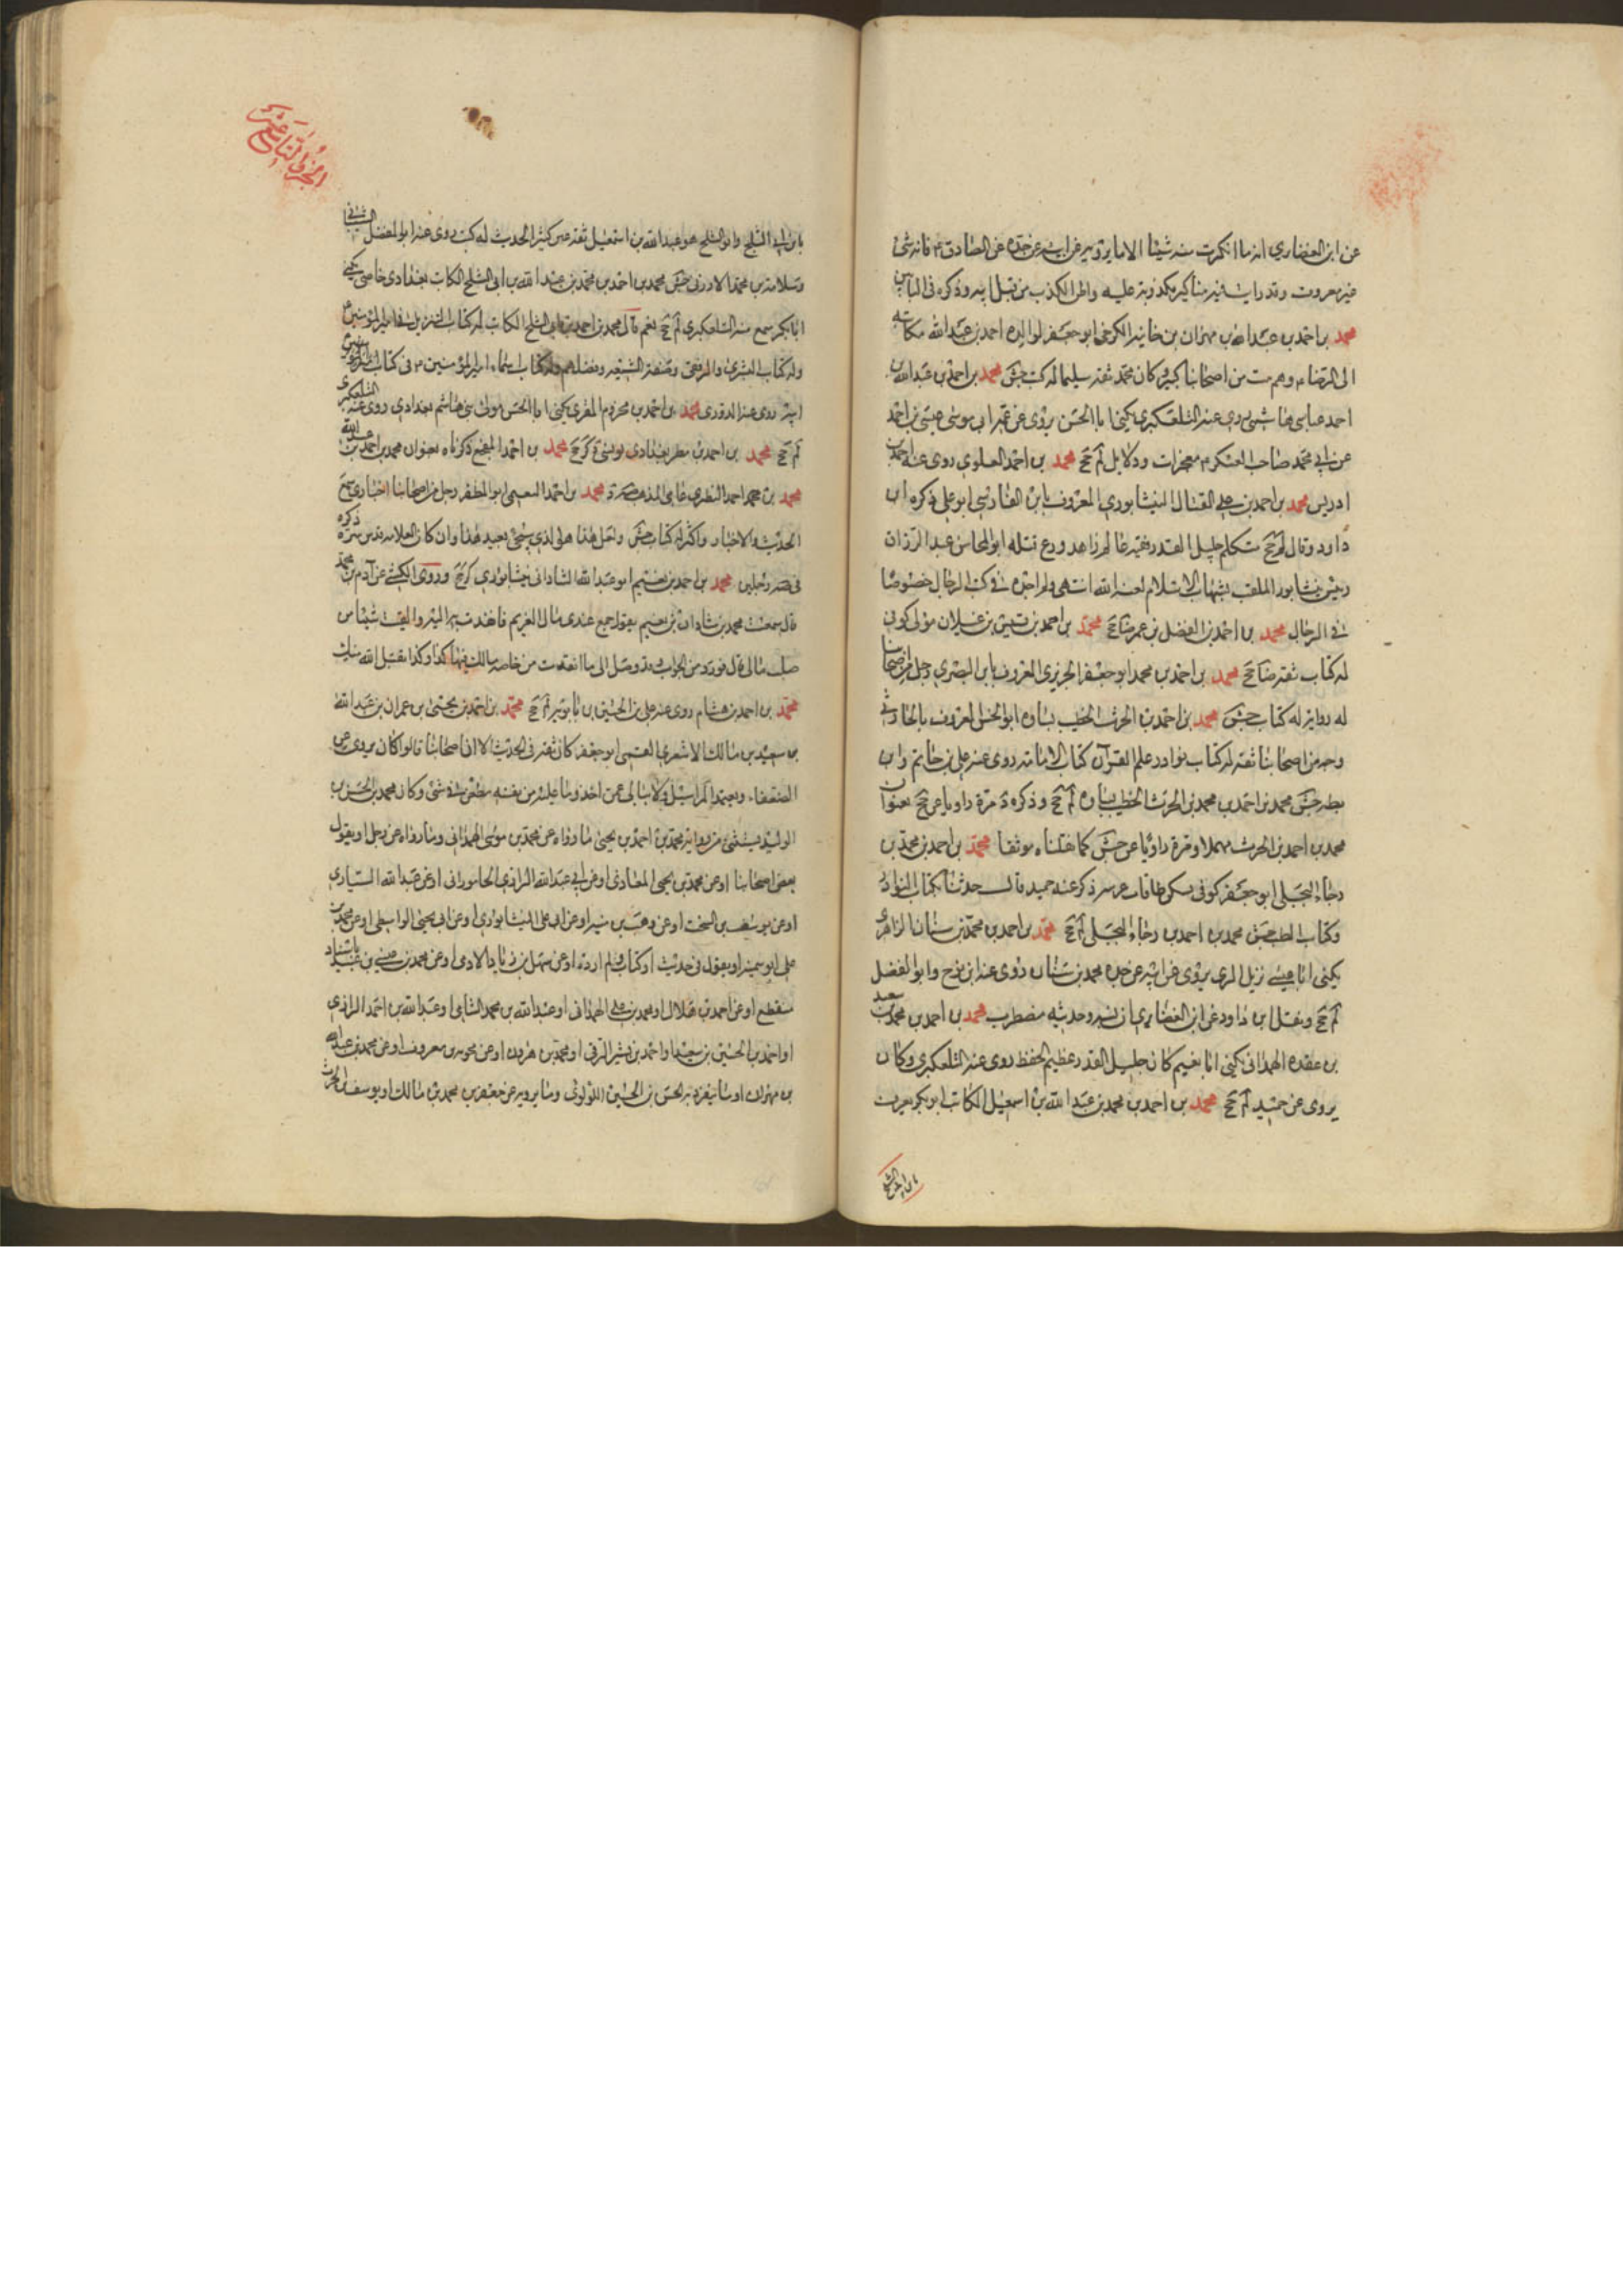 عن ابن الغضايري انه ما انكرت منه شيئا الا ما يرويه عن ابيه عن جده عن الصادق ع فانه شئ
غير معروف وقد رايت فيه مناكير مكذوبة عليه واظن الكذب من قبل ابيه وذكره في البابين
محمد بن احمد بن عبد الله بن مهران بن خانبه الكرخي ابو جعفر لوالده احمد بن عبد الله مكاتبة
الى الرضا ع وهم بيت من اصحابنا كبير كان محمد ثقة سليما له كتب جش محمد بن احمد بن عبد الله بن
احمد عباسي هاشمي روى عنه التلعكبري يكنى ابا الحسن يروى عن عم ابيه ابي موسى عيسى بن احمد
عن ابي محمد صاحب العسكر ع معجزات ودلايل لم جخ محمد بن احمد العلوي روى عنه احمد بن
ادريس محمد بن احمد بن علي الفتال النيشابوري المعروف بابن الفارسي ابو علي ذكره ابن
داود وقال لم جخ متكلم جليل القدر فقيه عالم زاهد ورع قتله ابو المحاسن عبد الرزاق
رييس نيشابور الملقب بشهاب الاسلام لعنه الله انتهى ولم اجده في كتب الرجال خصوصا
في الرجال محمد بن احمد بن الفضل بن عمر ضا جخ محمد بن احمد بن قيس بن غيلان مولى كوفي
له كتاب ثقة ضا جخ محمد بن احمد بن محمد ابو جعفر الجريري المعروف بابن البصري رجل من اصحابنا
له رواية له كتاب جش محمد بن احمد بن محمد بن الحرث الخطيب بساوه ابو الحسن المعروف بالحارثي
وجه من اصحابنا ثقة له كتاب نوادر علم القرآن كتاب الامامة روى عنه علي بن حاتم وابن
بطه جش محمد بن احمد بن محمد بن الحرث الخطيب بساوه لم جخ وذكره د مرة راويا عن جخ بعنوان
محمد بن احمد بن الحرث مهملا ومرة راويا عن جش كما نقلناه موثقا محمد بن احمد بن محمد بن
رجاء البجلي ابو جعفر كوفي يسكن طاقات عرينه ذكر عنه حميد قال حدثنا بكتاب النوادر
وكتاب الطب جش محمد بن احمد بن رجاء البجلي لم جخ محمد بن احمد بن محمد بن سنان الزاهري
يكنى ابا عيسى نزيل الري يروى عن ابيه عن جده محمد بن سنان روى عنه ابن نوح وابو الفضل
لم جخ ونقل ابن داود عن ابن الغضايري ان نسبه وحديثه مضطرب محمد بن احمد بن محمد بن سعيد
بن عقده الهمداني يكنى ابا نعيم كان جليل القدر عظيم الحفظ روى عنه التلعكبري وكان
يروى عن حميد لم جخ محمد بن احمد بن محمد بن عبد الله بن اسمعيل الكاتب ابو بكر يعرف
بابن ابي الثلج
الجزء التاسع عشر
بابن ابي الثلج وابو الثلج هو عبد الله بن اسمعيل ثقة عين كثير الحديث له كتب روى عنه ابو المفضل الشيباني
وسلامة بن محمد الارزني جش محمد بن احمد بن محمد بن عبد الله بن ابي الثلج الكاتب بغدادي خاصي يكنى
ابا بكر سمع منه التلعكبري لم جخ نعم قال محمد بن احمد بن ابي الثلج الكاتب له كتاب التنزيل في امير المؤمنين ع
وله كتاب البشرى والزلفى وصفة الشيعة وفضلهم وله كتاب اسماء امير المؤمنين ع في كتاب الله عز وجل
اخبر روى عنه الدوري محمد بن احمد بن مخزوم المقري يكنى ابا الحسن مولى بني هاشم بغدادي روى عنه التلعكبري
لم جخ محمد بن احمد بن مطهر بغدادي يونسي كر جخ محمد بن احمد المفجع ذكرناه بعنوان محمد بن احمد بن عبد الله
محمد بن محمد احمد النطنزي عامي المذهب محمد بن احمد النعيمي ابو المظفر رجل من اصحابنا اخباري سمع
الحديث والاخبار واكثر له كتاب جش ولعل هذا هو الذي سيجئ بعيد هذا وان كان العلامة قدس سره ذكره
في قصه رجلين محمد بن احمد بن نعيم ابو عبد الله الشاذاني نيشابوري كر جخ وروى الكشي عن آدم بن محمد
قال سمعت محمد بن شاذان بن نعيم يقول جمع عندي مال الغريم فانفذت به اليه والقيت شيئا من
صلب مالي قال فورد من الجواب قد وصل الي ما انفذت من خاصة مالك فيها كذا وكذا يقبل الله منك
محمد بن احمد بن هشام روى عنه علي بن الحسين بن بابويه لم جخ محمد بن احمد بن يحيى بن عمران بن عبد الله
بن سعد بن مالك الاشعري القمي ابو جعفر كان ثقة في الحديث الا ان اصحابنا قالوا كان يروى عن
الضعفاء ويعتمد المراسيل ولا يبالي عمن اخذ وما عليه من نفسه مطعن في شئ وكان محمد بن الحسن بن
الوليد يستثني من رواية محمد بن احمد بن يحيى ما رواه عن محمد بن موسى الهمداني وما رواه عن رجل او يقول
بعض اصحابنا او عن محمد بن يحيى المعاذي او عن ابي عبد الله الرازي الجاموراني او عن عبد الله السياري
او عن يوسف بن السخت او عن وهب بن منبه او عن ابي علي النيشابوري او عن ابي يحيى الواسطي او عن محمد بن
علي ابو سمينه او يقول في حديث او كتاب ولم اروه او عن سهل بن زياد الادمي او عن محمد بن عيسى بن عبيد باسناد
منقطع او عن احمد بن هلال او محمد بن علي الهمداني او عبد الله بن محمد الشامي او عبد الله بن احمد الرازي
او احمد بن الحسين بن سعيد او احمد بن بشير الرقي او محمد بن هرون او عن مموية بن معروف او عن محمد بن عبد الله
بن مهران او ما ينفرد به الحسن بن الحسين اللؤلؤي وما يرويه عن جعفر بن محمد بن مالك او يوسف بن الحرث